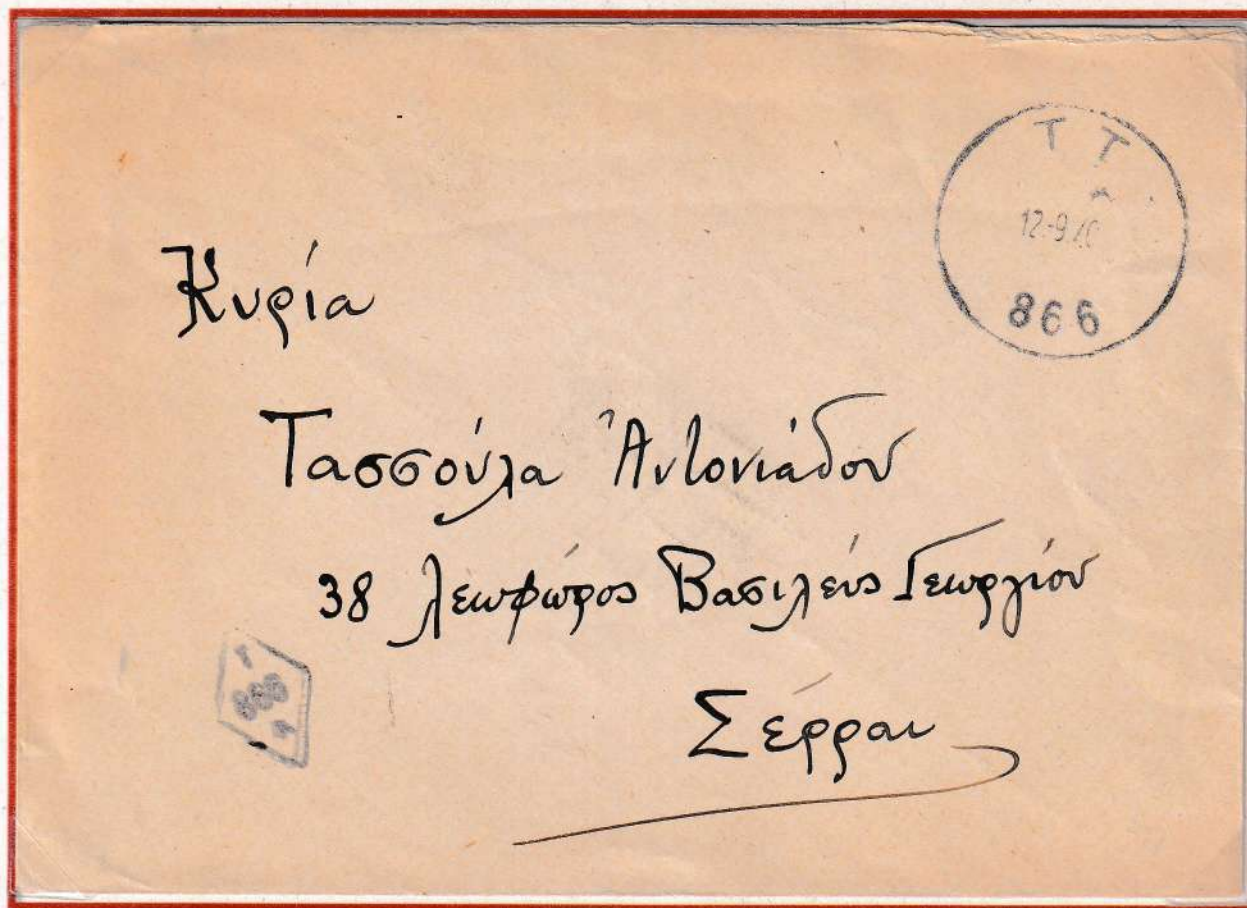 Τ Τ
866
Κυρία
Τασσούλα Ἀντονιάδου
38 λεωφώρος Βασιλεύς Γεωργίου
Σέρραι
Τ
866
Τ